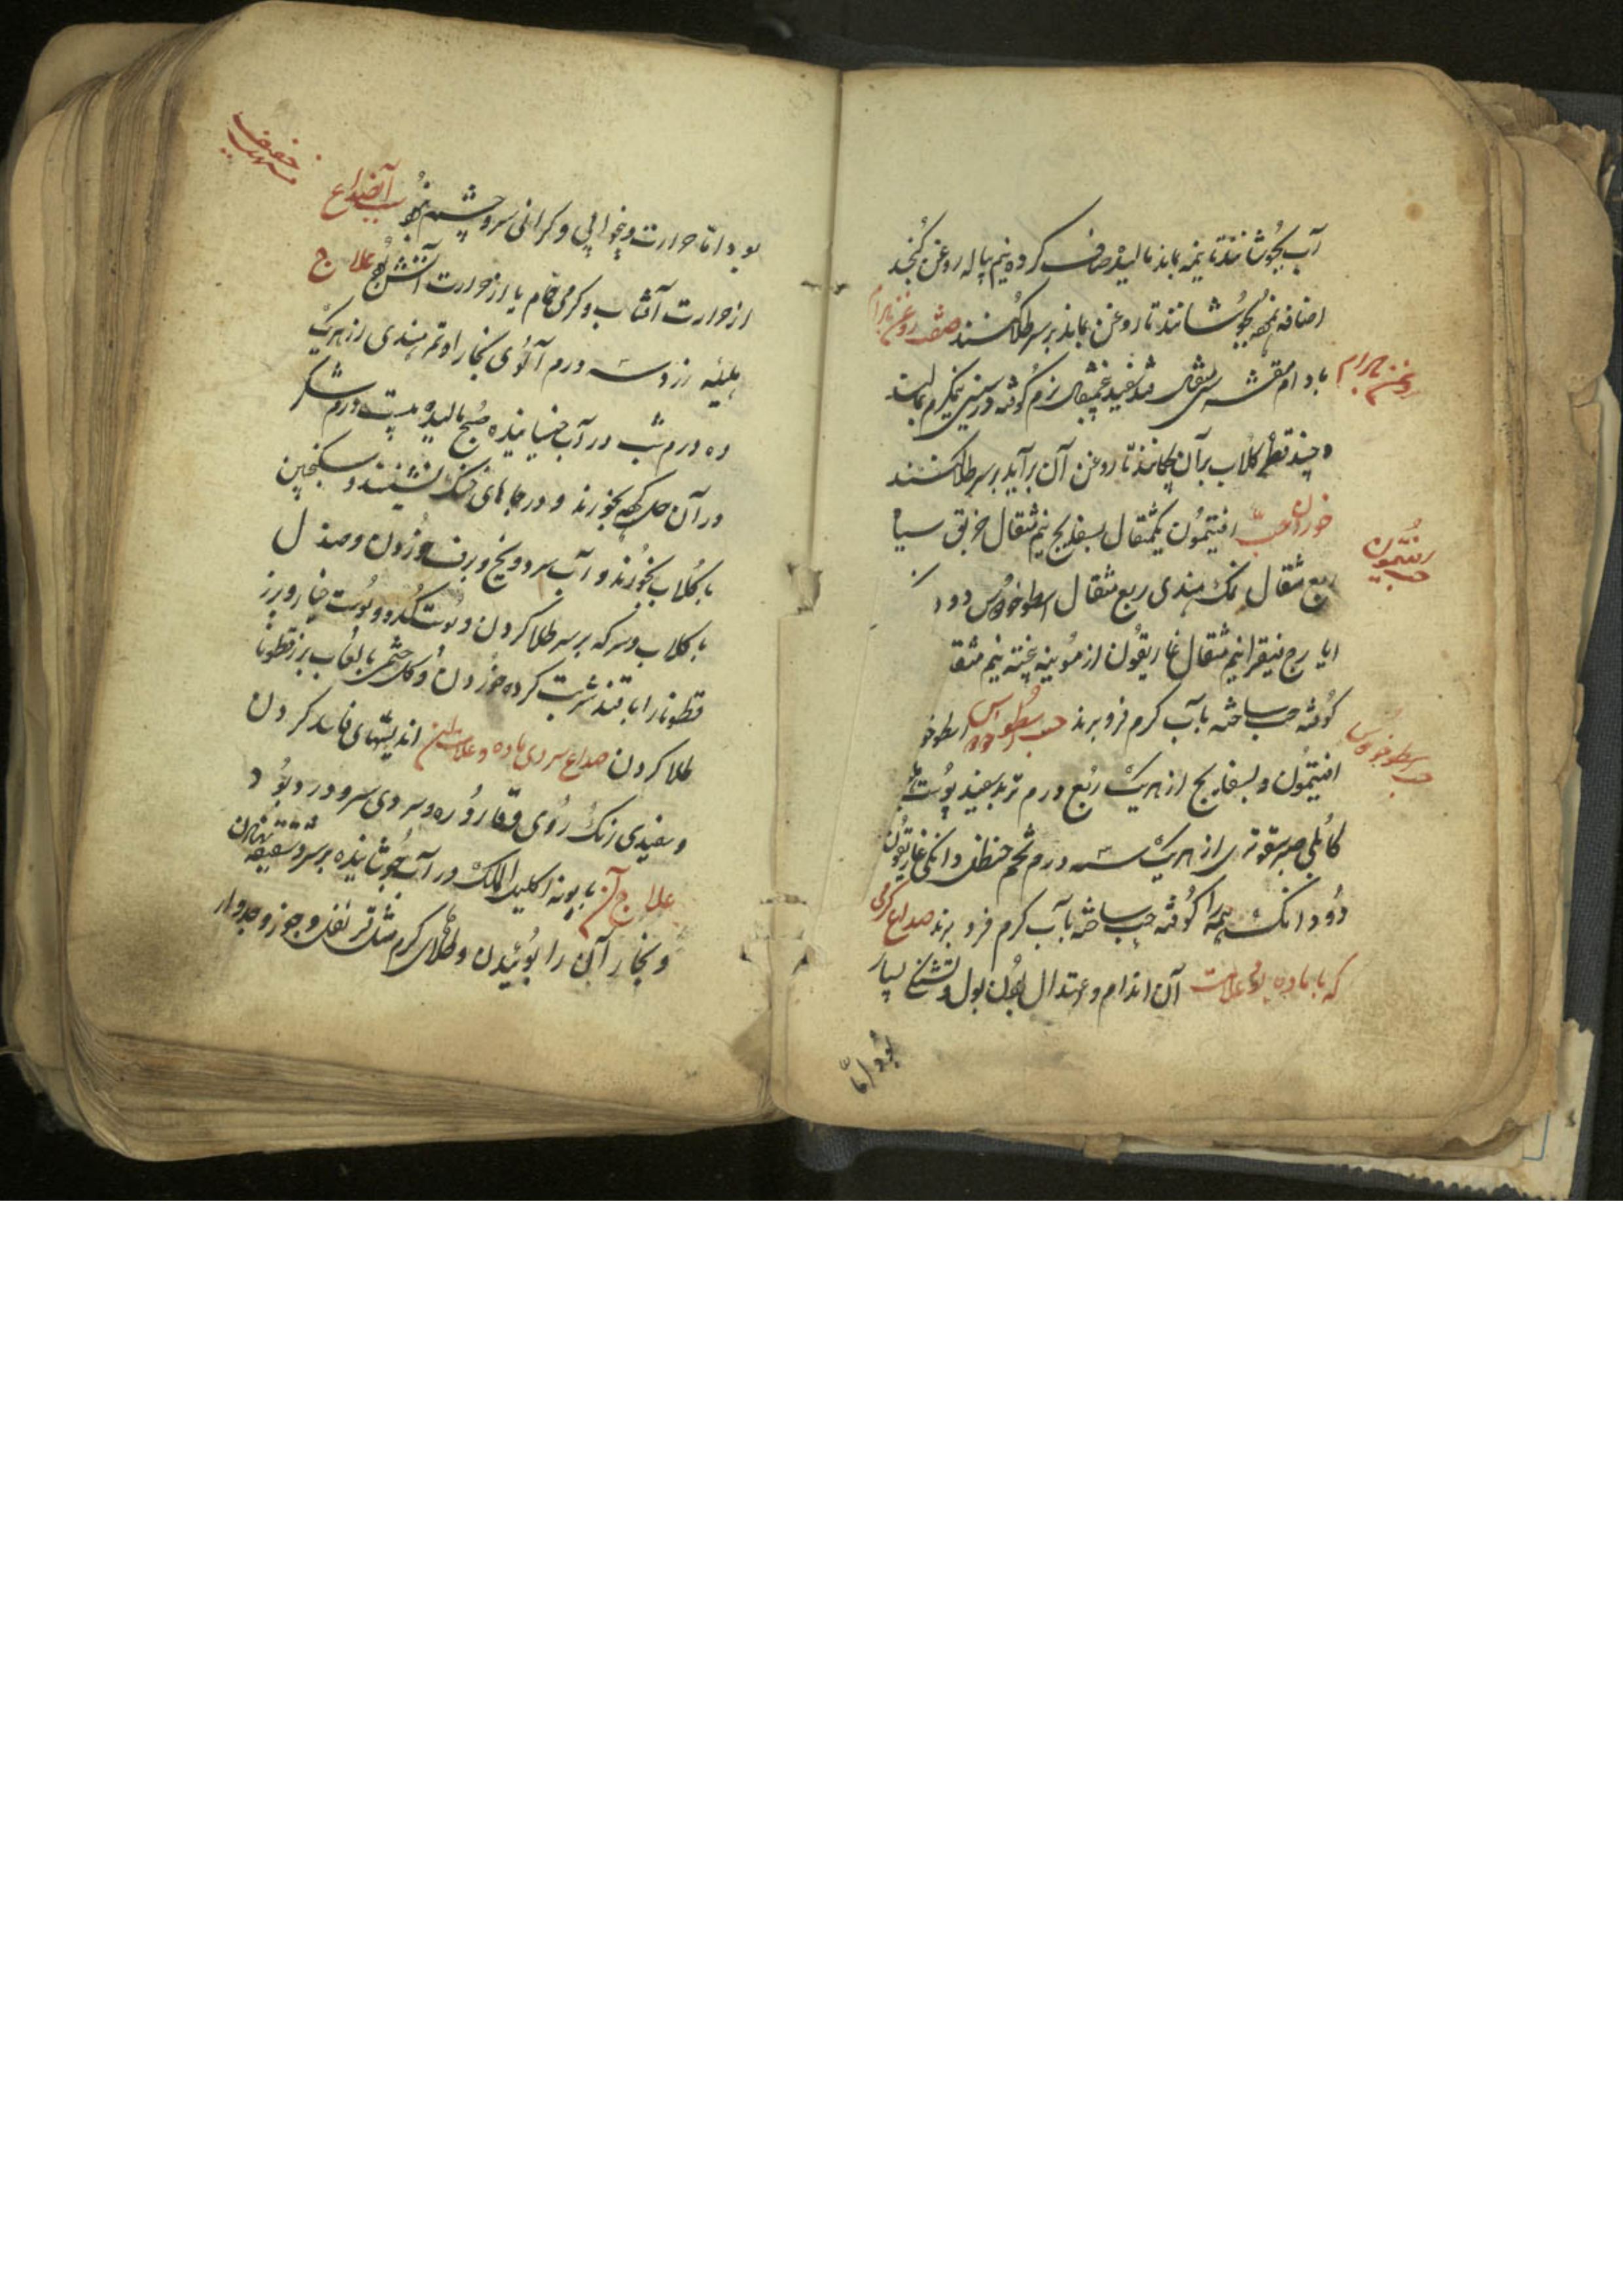 آب بجوشانند تا نیمه بماند مالیده صاف کرده نیم پیاله روغن کنجد
اضافه نموده بجوشانند تا روغن بماند بر سر طلا کنند صفت روغن بادام
روغن بادام
بادام مقشر سی مثقال قند سفید پنج مثقال نرم کوفته در سینی نیمگرم بمالند
و چند قطره کلاب برآن چکانند تا روغن آن برآید بر سر طلا کنند
خوردن حب افتیمون یکمثقال بسفایج نیم مثقال خربق سیاه
حب افتیمون
ربع مثقال نمک هندی ربع مثقال اسطوخودوس دو د
ایارج فیقرا نیم مثقال غاریقون از مویینه پخته نیم مثقا
کوفته حب ساخته باب کرم فرو برند حب اسطوخودوس اسطوخو
حب اسطوخودوس
افتیمون و بسفایج از هریک ربع درم تربد سفید پوست
کابلی صبر سقوتری از هریک سه درم شحم حنظل دانکی غاریقون
دو دانک همه را کوفته حب ساخته باب کرم فرو برند صداع کرمی
که با ماده بود علامت آن اندام و اعتدال بودن بول و تشنگی بسیار
بود اما
خفیف
بود اما حرارت و بیخوابی و کرانی سر و چشم نبود سبب آن صداع
از حرارت آفتاب و کرمی حمام یا از حرارت آتش بود علاج
هلیله زرد سه درم آلوی بخارا و تمر هندی از هریک
ده درم شب در آب خیسانیده صبح مالیده بیست درم شکر
در آن حل کرده بخورند و در جاهای خنک نشینند و سکنجبین
با کلاب بخورند و آب سرد و یخ و برف خوردن و صندل
با کلاب و سرکه بر سر طلا کردن و پوست کدو و پوست خیار و بزر
قطونا را با قند شربت کرده خوردن و کل ختمی با لعاب بزرقطونا
طلا کردن صداع سردی ماده و علامت این اندیشهای فاسد کردن
و سفیدی رنک روی و قاروره و سردی سر و درد بود
علاج آن بابونه اکلیل الملک در آب جوشانیده بر سر و شقیقه نهادن
و بخار آن را بوئیدن و طلاهای کرم مثل قرنفل و جوز و جدوار